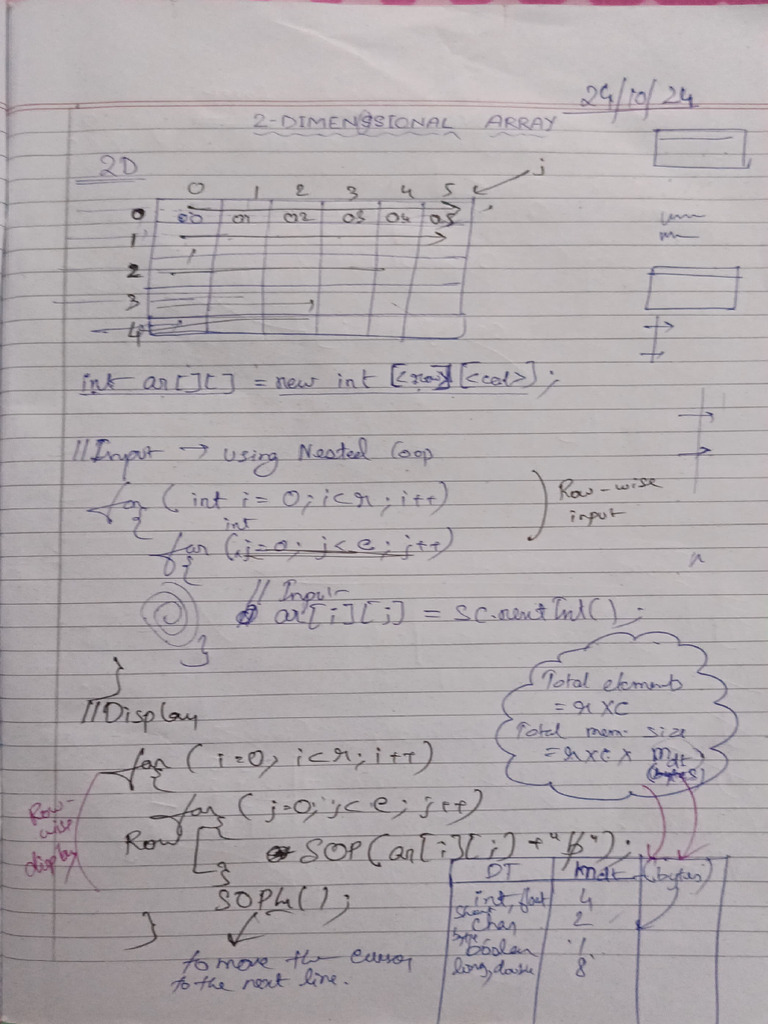 24/10/24
2-DIMENSIONAL ARRAY
2D
j
0 1 2 3 4 5
0 00 01 02 03 04 05
1
2
3
4
int ar[][] = new int [<row>] [<col>];
//Input → using Nested Loop
for (int i = 0; i<r; i++)
{
Row-wise
input
int
for (j=0; j<c; j++)
{
// Input
ar[i][j] = sc.nextInt();
}
}
Total elements
= r×c
Total mem. size
= r×c× mdt
(bytes)
//Display
for (i=0; i<r; i++)
{
for (j=0; j<c; j++)
{
Row-
wise
display
Row
SOP(ar[i][j] + "b̸");
}
SOPln();
}
to move the cursor
to the next line.
DT mdt (bytes)
int, float 4
short
char 2
byte
boolean 1
long, double 8